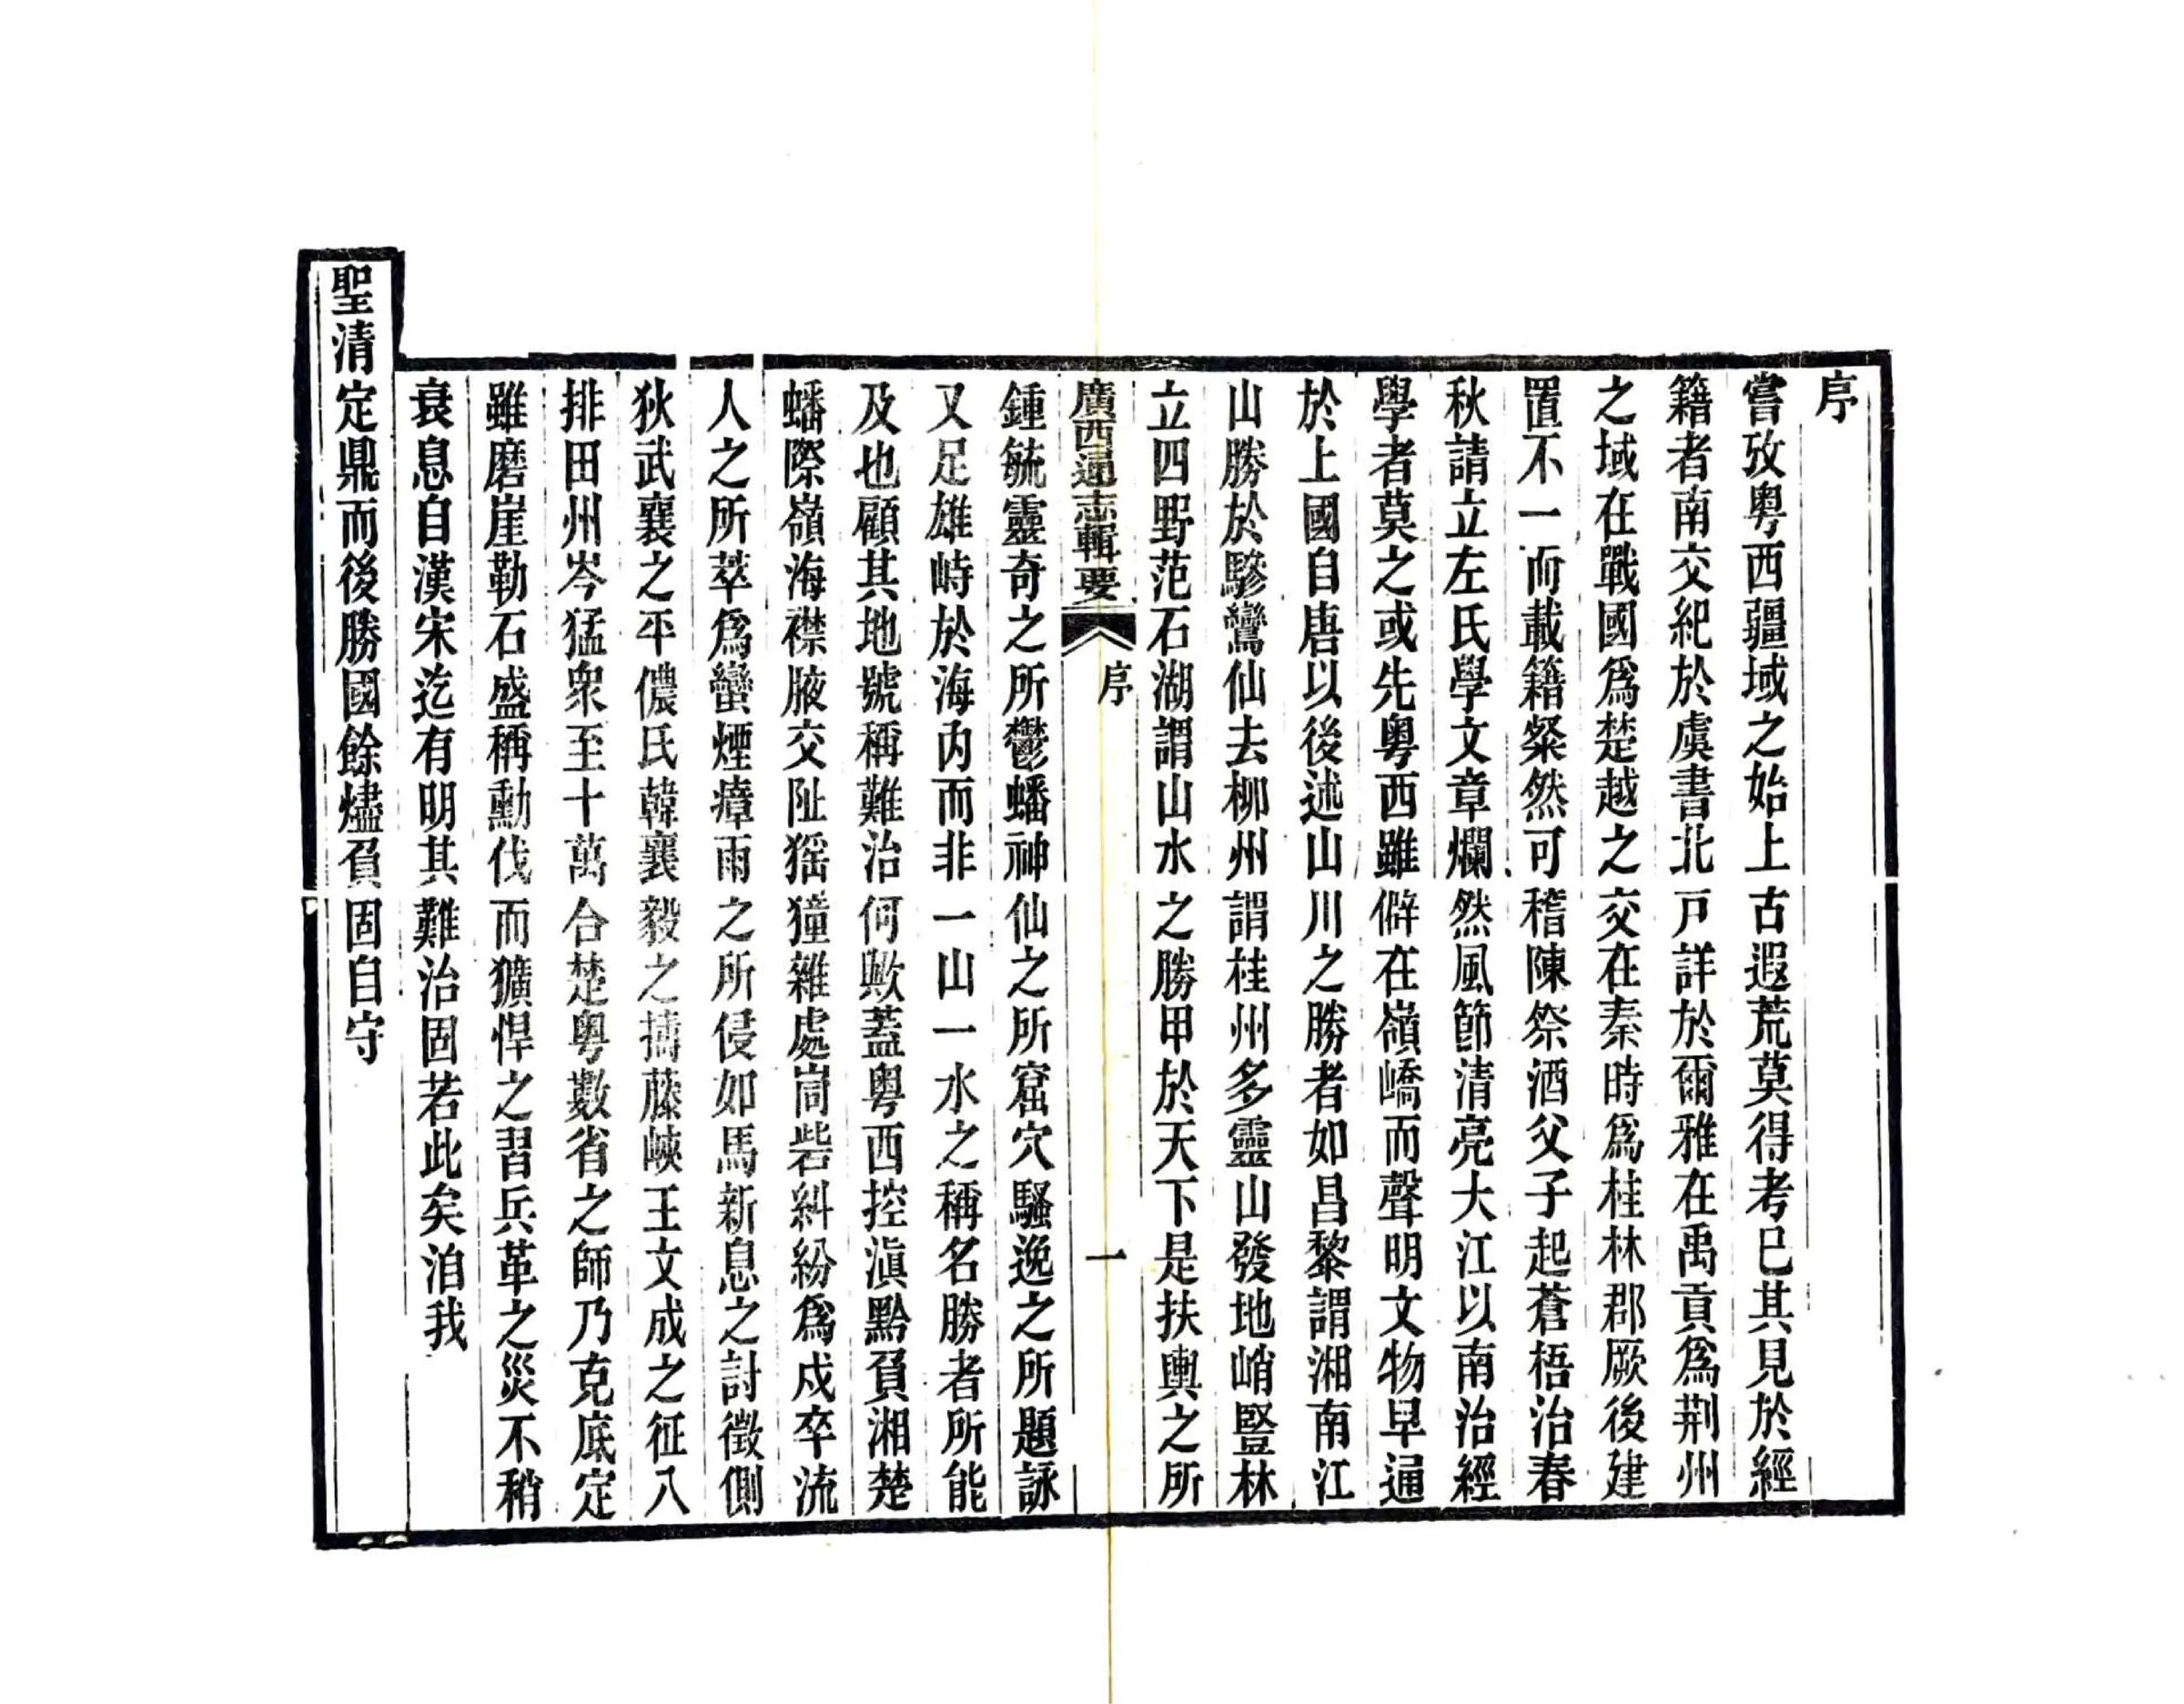 序
嘗攷粵西疆域之始上古遐荒莫得考已其見於經
籍者南交紀於虞書北戸詳於爾雅在禹貢爲荆州
之域在戰國爲楚越之交在秦時爲桂林郡厥後建
置不一而載籍粲然可稽陳祭酒父子起蒼梧治春
秋請立左氏學文章爛然風節清亮大江以南治經
學者莫之或先粵西雖僻在嶺嶠而聲明文物早通
於上國自唐以後述山川之勝者如昌黎謂湘南江
山勝於驂鸞仙去柳州謂桂州多靈山發地峭豎林
立四野范石湖謂山水之勝甲於天下是扶輿之所
廣西通志輯要
序
一
鍾毓靈奇之所鬱蟠神仙之所窟穴騷逸之所題詠
又足雄峙於海內而非一山一水之稱名勝者所能
及也顧其地號稱難治何歟蓋粵西控滇黔負湘楚
蟠際嶺海襟腋交阯猺獞雜處峝砦糾紛爲戍卒流
人之所萃爲蠻煙瘴雨之所侵如馬新息之討徵側
狄武襄之平儂氏韓襄毅之擣藤峽王文成之征八
排田州岑猛衆至十萬合楚粵數省之師乃克底定
雖磨崖勒石盛稱勳伐而獷悍之習兵革之災不稍
衰息自漢宋迄有明其難治固若此矣洎我
聖清定鼎而後勝國餘燼負固自守